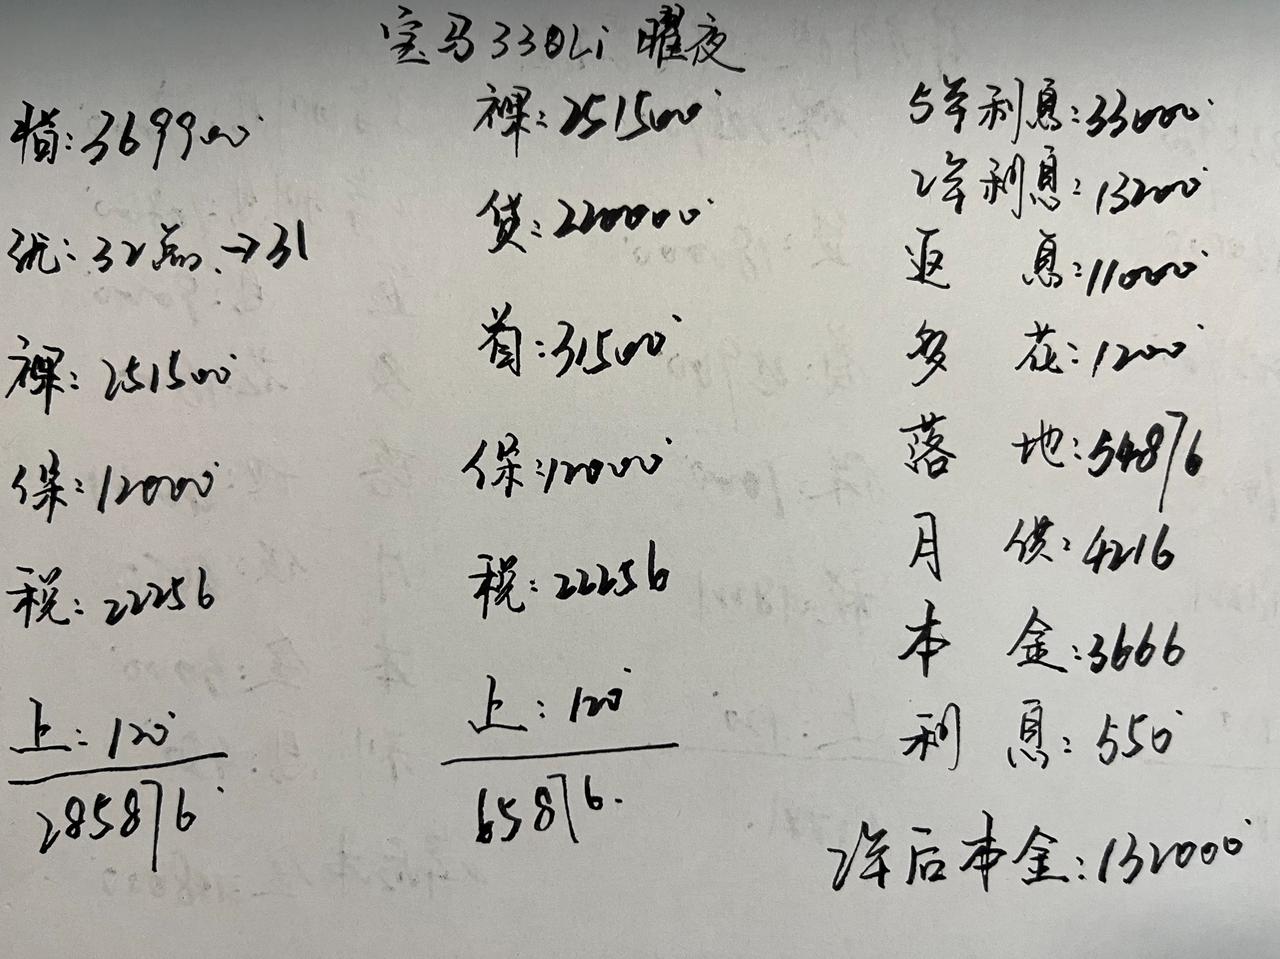 宝马330Li 曜夜
指:369900
优:32点→31
裸:251500
保:12000
税:22256
上:120
285876
裸:251500
贷:220000
首:31500
保:12000
税:22256
上:120
65876
5年利息:33000
2年利息:13200
返息:11000
多花:1200
落地:54876
月供:4216
本金:3666
利息:550
2年后本金:132000